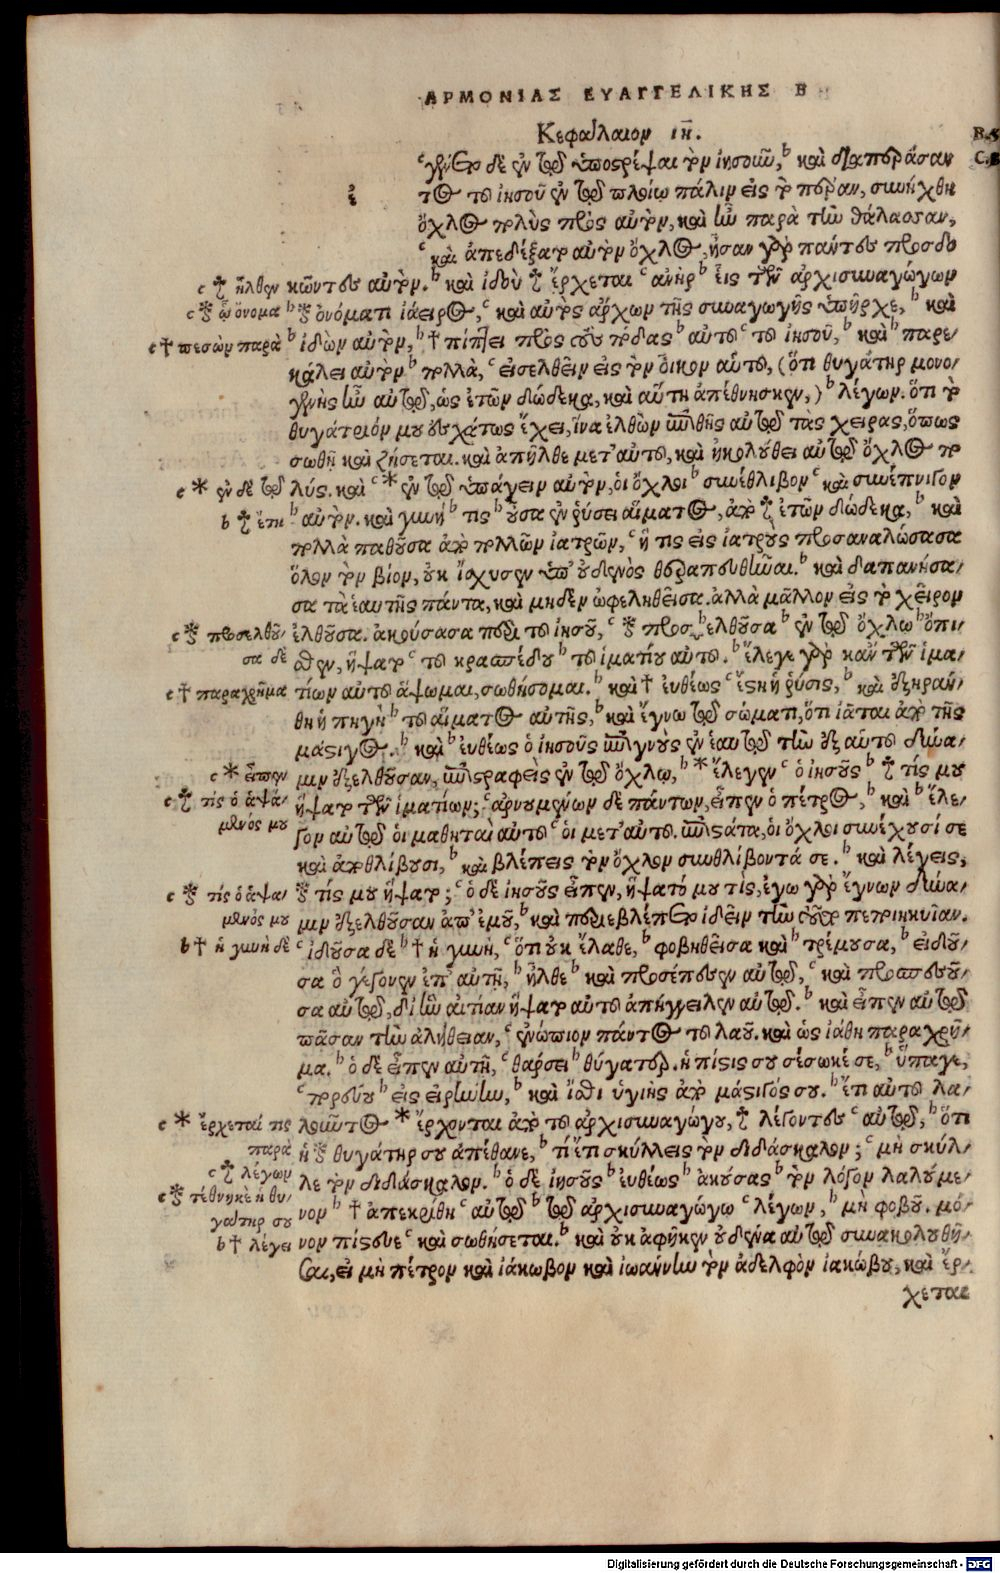 ΑΡΜΟΝΙΑΣ ΕΥΑΓΓΕΛΙΚΗΣ Β
Κεφάλαιον ιη.
B.5
C.8
ἐ
ᶜγένετο δὲ ἐν τῷ ὑποστρέψαι τὸν ἰησοῦν, ᵇ καὶ διαπεράσαν
τος τοῦ ἰησοῦ ἐν τῷ πλοίῳ πάλιν εἰς τὸ πέραν, συνήχθη
ὄχλος πολὺς πρὸς αὐτὸν, καὶ ἦν παρὰ τὴν θάλασσαν,
ᶜ καὶ ἀπεδέξατο αὐτὸν ὄχλος, ἦσαν γὰρ πάντες προσδο
c ☨ ἦλθεν
κῶντες αὐτὸν. ᵇ καὶ ἰδοὺ ☨ ἔρχεται ᶜ ἀνὴρ ᵇ εἷς τῶν ἀρχισυναγώγων
c ※ ᾧ ὄνομα
ᵇ ※ ὀνόματι ἰάειρος, ᶜ καὶ αὐτὸς ἄρχων τῆς συναγωγῆς ὑπῆρχε, ᵇ καὶ
c † πεσὼν παρὰ
ᵇ ἰδὼν αὐτὸν, ᵇ † πίπτει πρὸς τοὺς πόδας ᵇ αὐτοῦ ᶜ τοῦ ἰησοῦ, ᵇ καὶ ᵇ παρε/
κάλει αὐτὸν ᵇ πολλὰ, ᶜ εἰσελθεῖν εἰς τὸν οἶκον αὐτοῦ, (ὅτι θυγάτηρ μονο/
γενὴς ἦν αὐτῷ, ὡς ἐτῶν δώδεκα, καὶ αὕτη ἀπέθνησκεν,) ᵇ λέγων. ὅτι τὸ
θυγάτριόν μου ἐσχάτως ἔχει, ἵνα ἐλθὼν ἐπιθῇς αὐτῷ τὰς χεῖρας, ὅπως
σωθῇ καὶ ζήσεται. καὶ ἀπῆλθε μετ' αὐτοῦ, καὶ ἠκολούθει αὐτῷ ὄχλος πο
c * ἐν δὲ τῷ
λύς. καὶ ᶜ * ἐν τῷ ὑπάγειν αὐτὸν, οἱ ὄχλοι ᵇ συνέθλιβον ᶜ καὶ συνέπνιγον
b ☨ ἔτη
ᵇ αὐτὸν. καὶ γυνή ᵇ τις ᵇ οὖσα ἐν ῥύσει αἵματος, ἀπὸ ☨ ἐτῶν δώδεκα, ᵇ καὶ
πολλὰ παθοῦσα ἀπὸ πολλῶν ἰατρῶν, ᶜ ἥ τις εἰς ἰατροὺς προσαναλώσασα
ὅλον τὸν βίον, οὐκ ἴσχυσεν ὑπ' οὐδενὸς θεραπευθῆναι. ᵇ καὶ δαπανήσα/
σα τὰ ἑαυτῆς πάντα, καὶ μηδὲν ὠφεληθεῖσα. ἀλλὰ μᾶλλον εἰς τὸ χεῖρον
c ※ προσελθοῦ/
σα δὲ
ἐλθοῦσα. ἀκούσασα περὶ τοῦ ἰησοῦ, ᶜ ※ προσ ᵇ ελθοῦσα ᵇ ἐν τῷ ὄχλῳ ᵇ ὄπι/
σθεν, ἥψατο ᶜ τοῦ κρασπέδου ᵇ τοῦ ἱματίου αὐτοῦ. ᵇ ἔλεγε γὰρ κἂν τῶν ἱμα/
c † παραχρῆμα
τίων αὐτοῦ ἅψωμαι, σωθήσομαι. ᵇ καὶ † εὐθέως ᶜ ἔστη ἡ ῥύσις, ᵇ καὶ ἐξηράν/
θη ἡ πηγὴ ᵇ τοῦ αἵματος αὐτῆς, ᵇ καὶ ἔγνω τῷ σώματι, ὅτι ἰᾶται ἀπὸ τῆς
μάστιγος. ᵇ καὶ ᵇ εὐθέως ὁ ἰησοῦς ἐπιγνοὺς ἐν ἑαυτῷ τὴν ἐξ αὐτοῦ δύνα/
c * εἶπεν
μιν ἐξελθοῦσαν, ἐπιστραφεὶς ἐν τῷ ὄχλῳ, ᵇ * ἔλεγεν ᶜ ὁ ἰησοῦς ᵇ ☨ τίς μου
c ☨ τίς ὁ ἁψά/
μενός μου
ἥψατο τῶν ἱματίων; ᶜ ἀρνουμένων δὲ πάντων, εἶπεν ὁ πέτρος, ᵇ καὶ ᵇ ἔλε/
γον αὐτῷ οἱ μαθηταὶ αὐτοῦ ᶜ οἱ μετ' αὐτοῦ. ἐπιστάτα, οἱ ὄχλοι συνέχουσί σε
καὶ ἀποθλίβουσι, ᵇ καὶ βλέπεις τὸν ὄχλον συνθλίβοντά σε. ᵇ καὶ λέγεις,
c ※ τίς ὁ ἁψά/
μενός μου
※ τίς μου ἥψατο; ᶜ ὁ δὲ ἰησοῦς εἶπεν, ἥψατό μου τίς, ἐγὼ γὰρ ἔγνων δύνα/
μιν ἐξελθοῦσαν ἀπ' ἐμοῦ, ᵇ καὶ περιεβλέπετο ἰδεῖν τὴν τοῦτο πεποιηκυῖαν.
b † ἡ γυνὴ δὲ
ᶜ ἰδοῦσα δὲ ᵇ † ἡ γυνὴ, ᶜ ὅτι οὐκ ἔλαθε, ᵇ φοβηθεῖσα καὶ ᵇ τρέμουσα, ᵇ εἰδοῦ/
σα ὃ γέγονεν ἐπ' αὐτῇ, ᵇ ἦλθε ᵇ καὶ προσέπεσεν αὐτῷ, ᶜ καὶ προσπεσοῦ/
σα αὐτῷ, δι' ἣν αἰτίαν ἥψατο αὐτοῦ ἀπήγγειλεν αὐτῷ. ᵇ καὶ εἶπεν αὐτῷ
πᾶσαν τὴν ἀλήθειαν, ᶜ ἐνώπιον παντὸς τοῦ λαοῦ. καὶ ὡς ἰάθη παραχρῆ/
μα. ᵇ ὁ δὲ εἶπεν αὐτῇ, ᶜ θάρσει ᵇ θύγατερ. ἡ πίστις σου σέσωκέ σε, ᵇ ὕπαγε,
ᶜ πορεύου ᵇ εἰς εἰρήνην, ᵇ καὶ ἴσθι ὑγιὴς ἀπὸ μάστιγός σου. ᵇ ἔτι αὐτοῦ λα/
c * ἔρχεταί τις
παρὰ
λοῦντος * ἔρχονται ἀπὸ τοῦ ἀρχισυναγώγου, ☨ λέγοντες ᶜ αὐτῷ, ᵇ ὅτι
c ☨ λέγων
ἡ ※ θυγάτηρ σου ἀπέθανε, ᵇ τί ἔτι σκύλλεις τὸν διδάσκαλον; ᶜ μὴ σκύλ/
c ※ τέθνηκε ἡ θυ/
γάτηρ σου
λε τὸν διδάσκαλον. ᵇ ὁ δὲ ἰησοῦς ᵇ εὐθέως ᵇ ἀκούσας ᵇ τὸν λόγον λαλούμε/
νον ᵇ † ἀπεκρίθη ᶜ αὐτῷ ᵇ τῷ ἀρχισυναγώγῳ ᶜ λέγων, ᵇ μὴ φοβοῦ. μό/
b † λέγει
νον πίστευε ᶜ καὶ σωθήσεται. ᵇ καὶ οὐκ ἀφῆκεν οὐδένα αὐτῷ συνακολουθῆ/
σαι, εἰ μὴ πέτρον καὶ ἰάκωβον καὶ ἰωάννην τὸν ἀδελφὸν ἰακώβου, καὶ ἔρ/
χεται
Digitalisierung gefördert durch die Deutsche Forschungsgemeinschaft - DFG